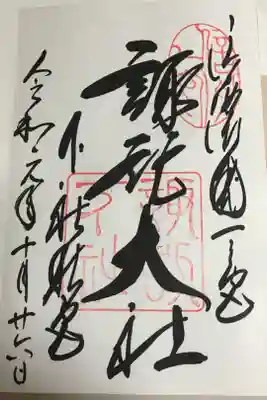 信濃國一之宮
諏訪大社
下社秋宮
令和元年十月廿六日